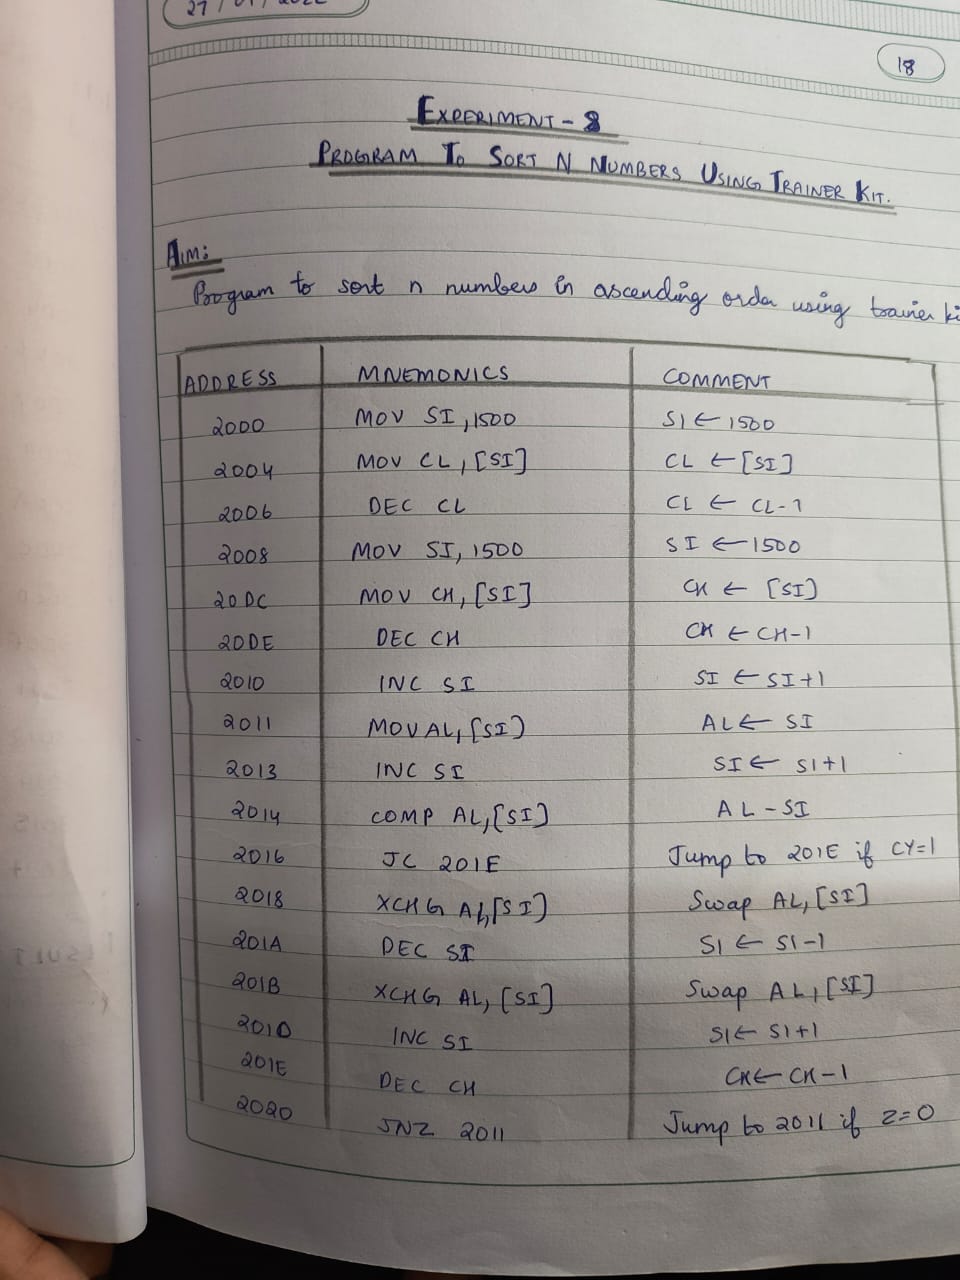 27/01/2022
18
EXPERIMENT - 8
PROGRAM TO SORT N NUMBERS USING TRAINER KIT.
AIM:
Program to sort n numbers in ascending order using trainer
ADDRESS MNEMONICS COMMENT
2000 MOV SI, 1500 SI ← 1500
2004 MOV CL, [SI] CL ← [SI]
2006 DEC CL CL ← CL-1
2008 MOV SI, 1500 SI ← 1500
200C MOV CH, [SI] CH ← [SI]
200E DEC CH CH ← CH-1
2010 INC SI SI ← SI+1
2011 MOV AL, [SI] AL ← SI
2013 INC SI SI ← SI+1
2014 COMP AL, [SI] AL - SI
2016 JC 201E Jump to 201E if CY=1
2018 XCHG AL, [SI] Swap AL, [SI]
201A DEC SI SI ← SI-1
201B XCHG AL, [SI] Swap AL, [SI]
201D INC SI SI ← SI+1
201E DEC CH CH ← CH-1
2020 JNZ 2011 Jump to 2011 if Z=0